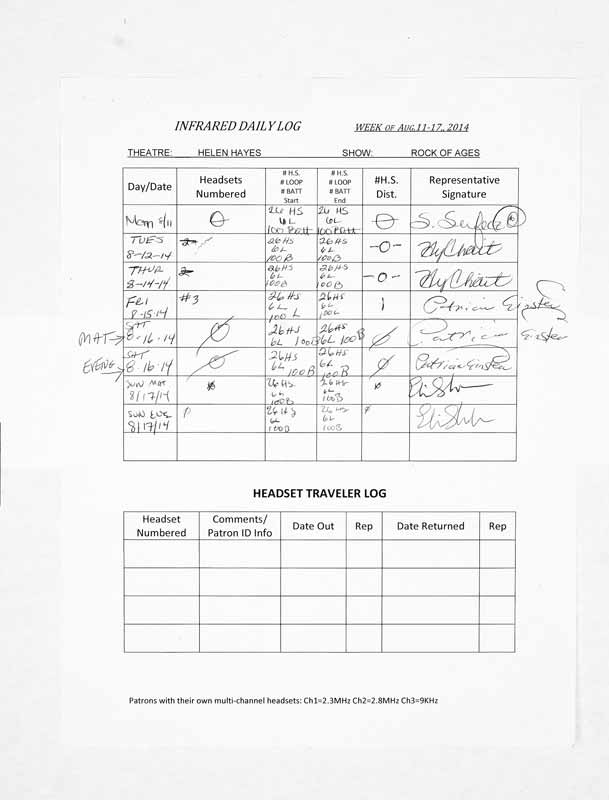 INFRARED DAILY LOG WEEK OF AUG.11-17, 2014
THEATRE: HELEN HAYES SHOW: ROCK OF AGES
Day/Date Headsets Numbered # H.S. # LOOP # BATT Start # H.S. # LOOP # BATT End #H.S. Dist. Representative Signature
Mon 8/11 0 26 HS 6L 100 Batt 26 HS 6L 100 Batt 0 S.
TUES 8-12-14 26HS 6L 100B 26HS 6L 100B -0-
THUR 8-14-14 26HS 6L 100B 26HS 6L 100B -0-
FRI 8-15-14 #3 26 HS 6L 100 L 26HS 6L 100L 1 Patricia Einstein
MAT→ SAT 8-16-14 Ø 26HS 6L 100B 26HS 6L 100B Ø Patricia Einstein
EVENG→ SAT 8-16-14 Ø 26HS 6L 100B 26HS 6L 100B Ø Patricia Einstein
SUN MAT 8/17/14 Ø 26HS 6L 100B 26HS 6L 100B Ø
SUN EVE 8/17/14 26HS 6L 100B 26HS 6L 100B Ø
HEADSET TRAVELER LOG
Headset Numbered Comments/ Patron ID Info Date Out Rep Date Returned Rep
Patrons with their own multi-channel headsets: Ch1=2.3MHz Ch2=2.8MHz Ch3=9KHz